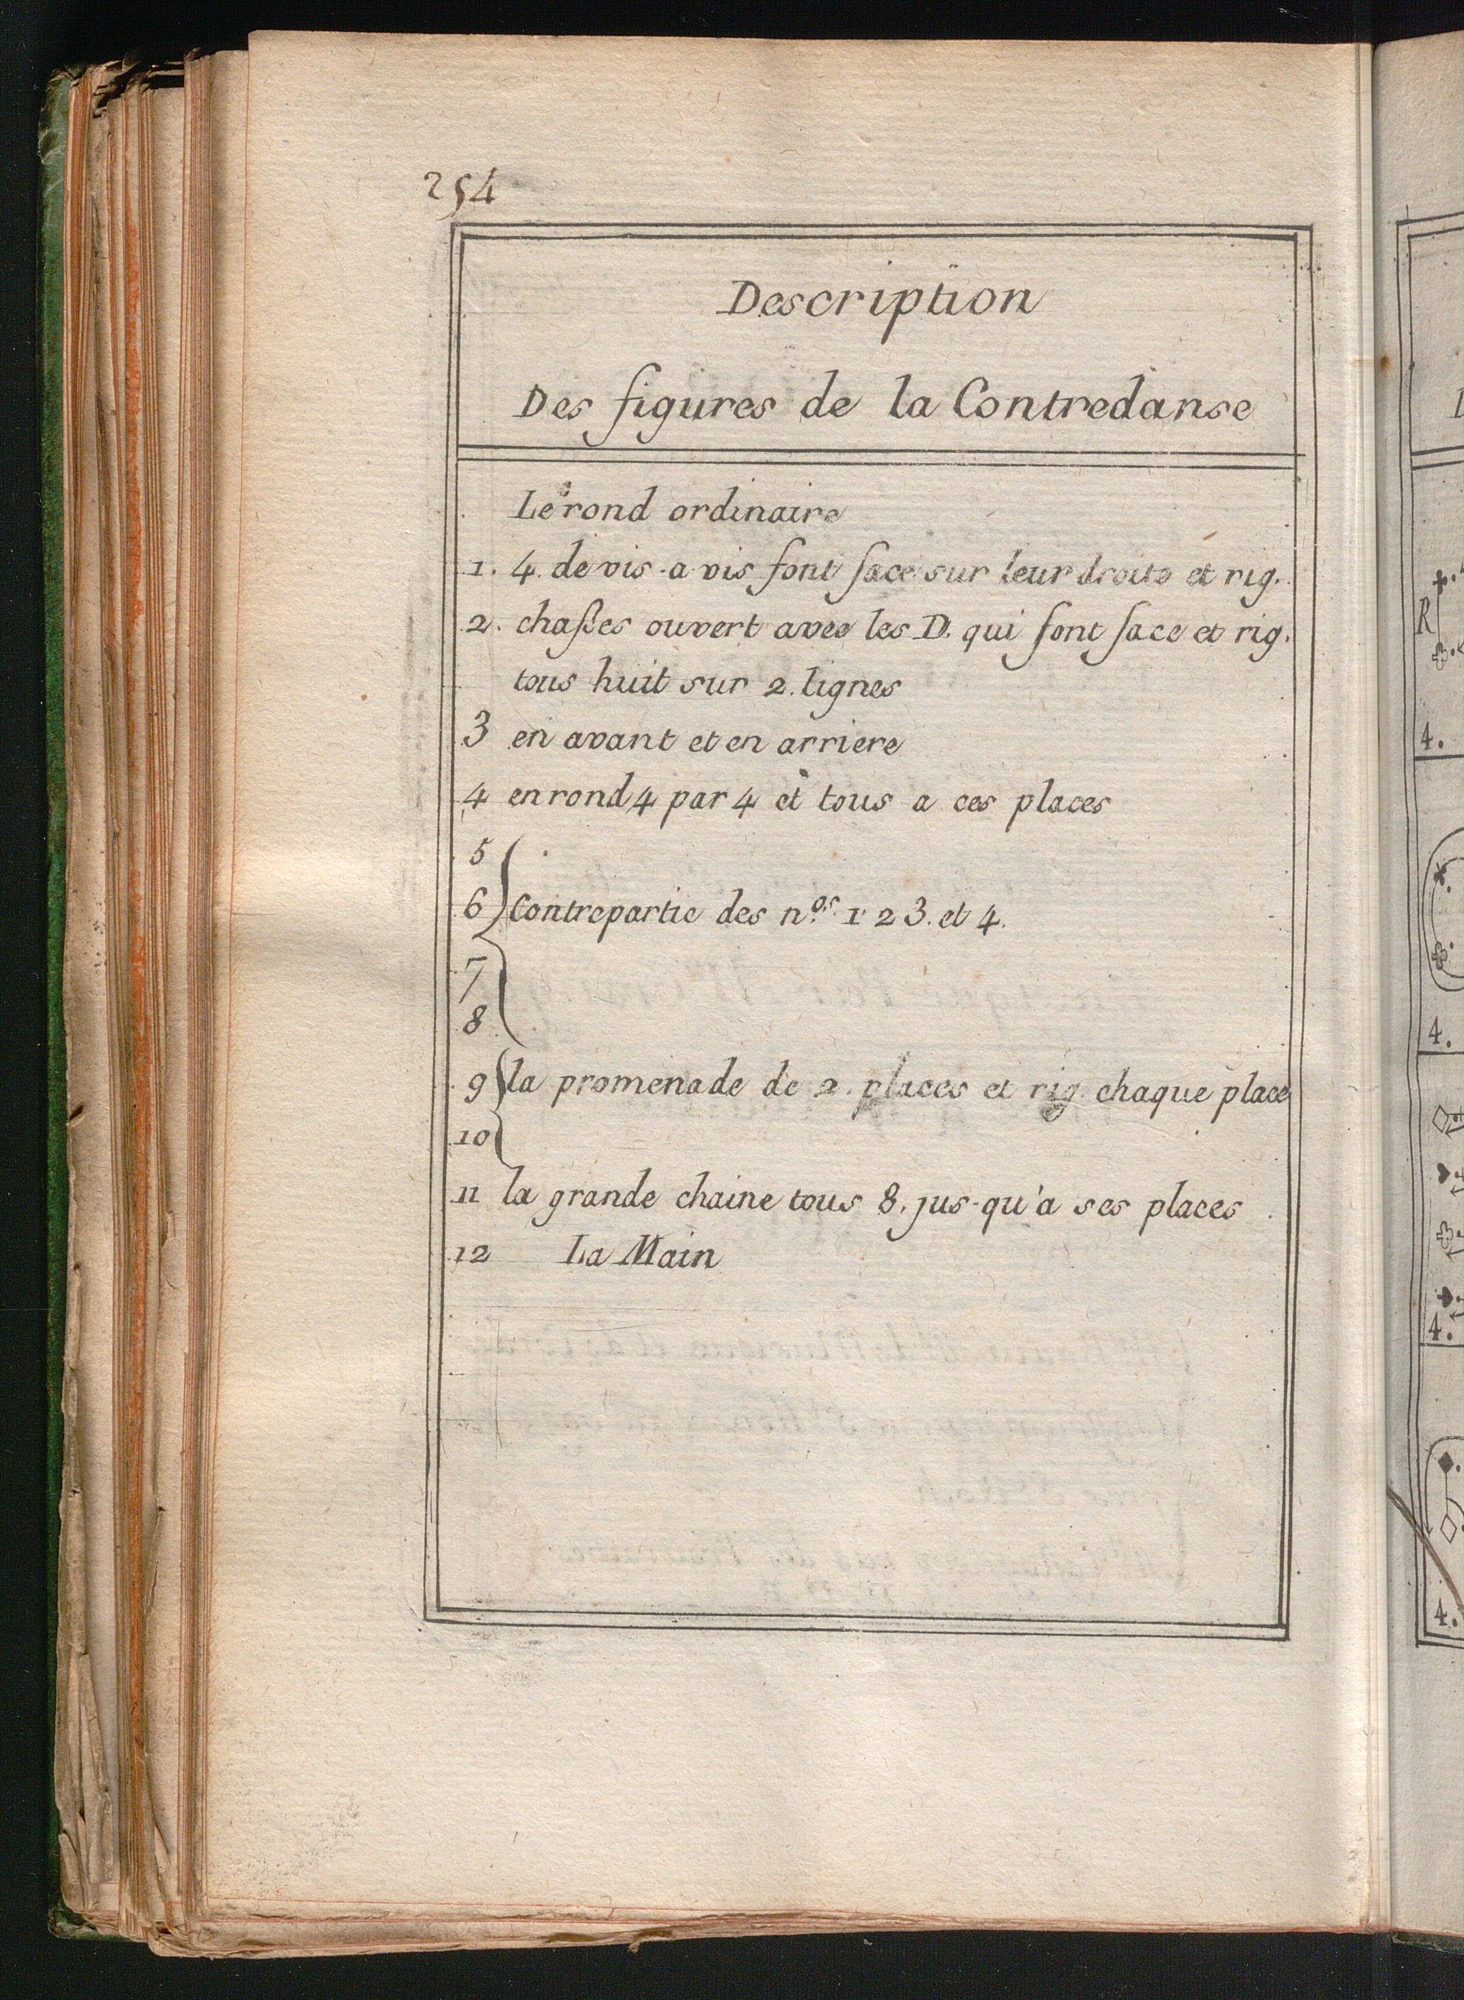 254
Description
Des figures de la Contredanse
Le rond ordinaire
1. 4. de vis-a-vis font face sur leur droite et rig.
2. chaßes ouvert avec les D. qui font face et rig.
tous huit sur 2. lignes
3 en avant et en arriere
4 en rond 4 par 4 et tous a ces places
5
6 Contrepartie des n.os 1 2 3. et 4.
7
8
9 la promenade de 2. places et rig. chaque place
10
11 la grande chaine tous 8. jus-qu'a ses places
12 La Main
R
4.
4.
4.
4.